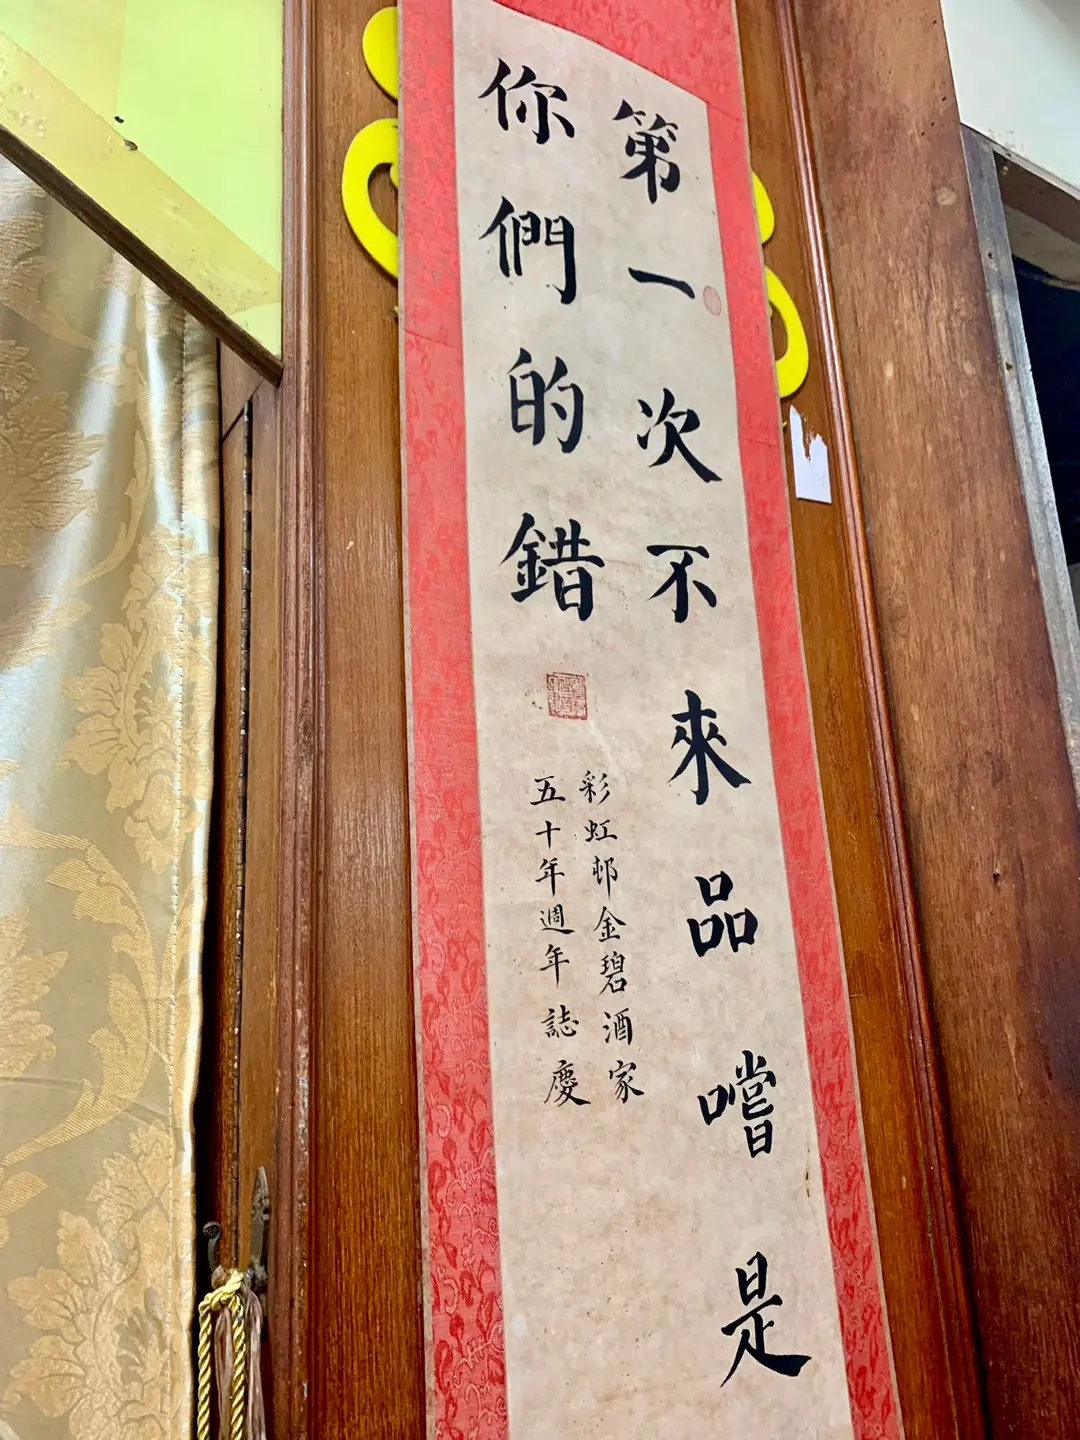 第一次不來品嚐是
你們的錯
彩虹邨金碧酒家
五十年週年誌慶